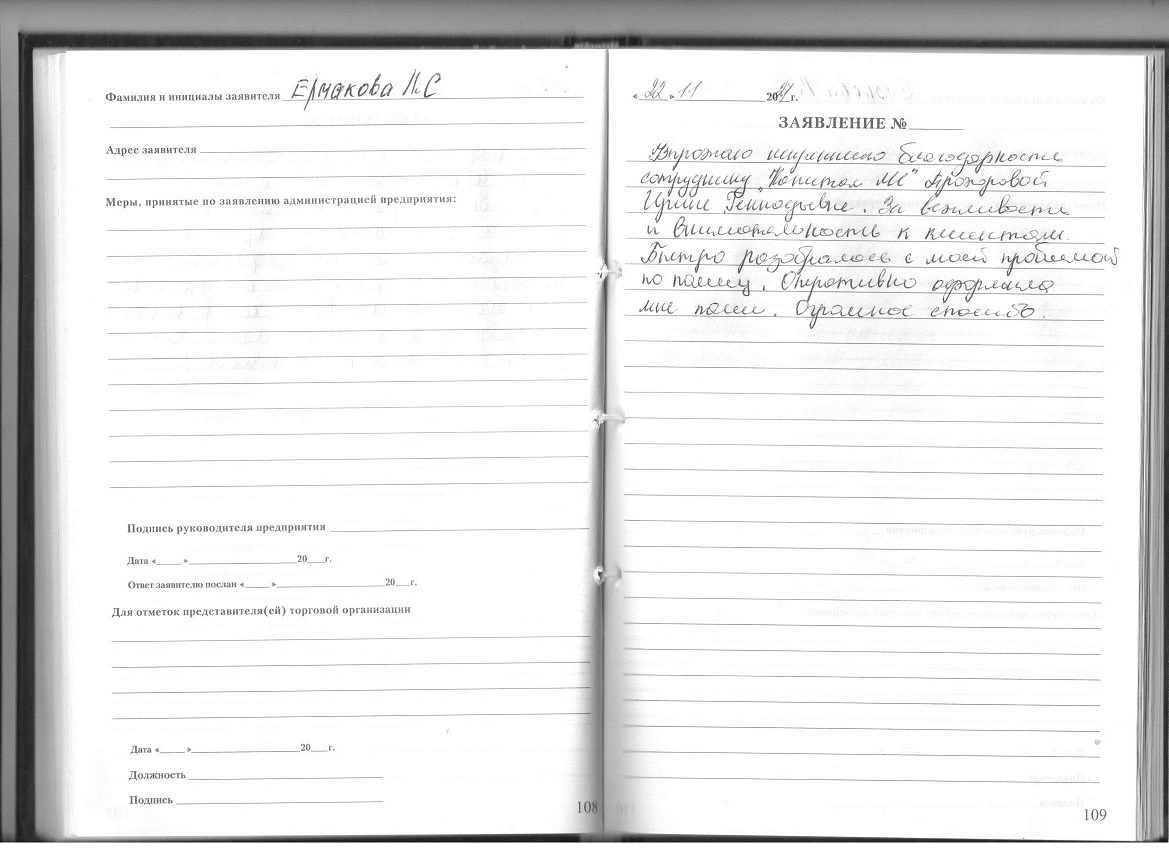 Фамилия и инициалы заявителя Ермакова Н.С
Адрес заявителя
Меры, принятые по заявлению администрацией предприятия:
Подпись руководителя предприятия
Дата «____ »____________20___г.
Ответ заявителю послан «____ »____________20___г.
Для отметок представителя(ей) торговой организации
Дата «____ »____________20___г.
Должность
Подпись
108
«22 » 11 2021 г.
ЗАЯВЛЕНИЕ №
Выражаю искреннею благодарность
сотруднику "Капитал МС" Прохоровой
Ирине Геннадьевне. За вежливость
и внимательность к клиентам.
Быстро разобралась с моей проблемой
по полису. Оперативно оформила
мне полис. Огромное спасибо.
109